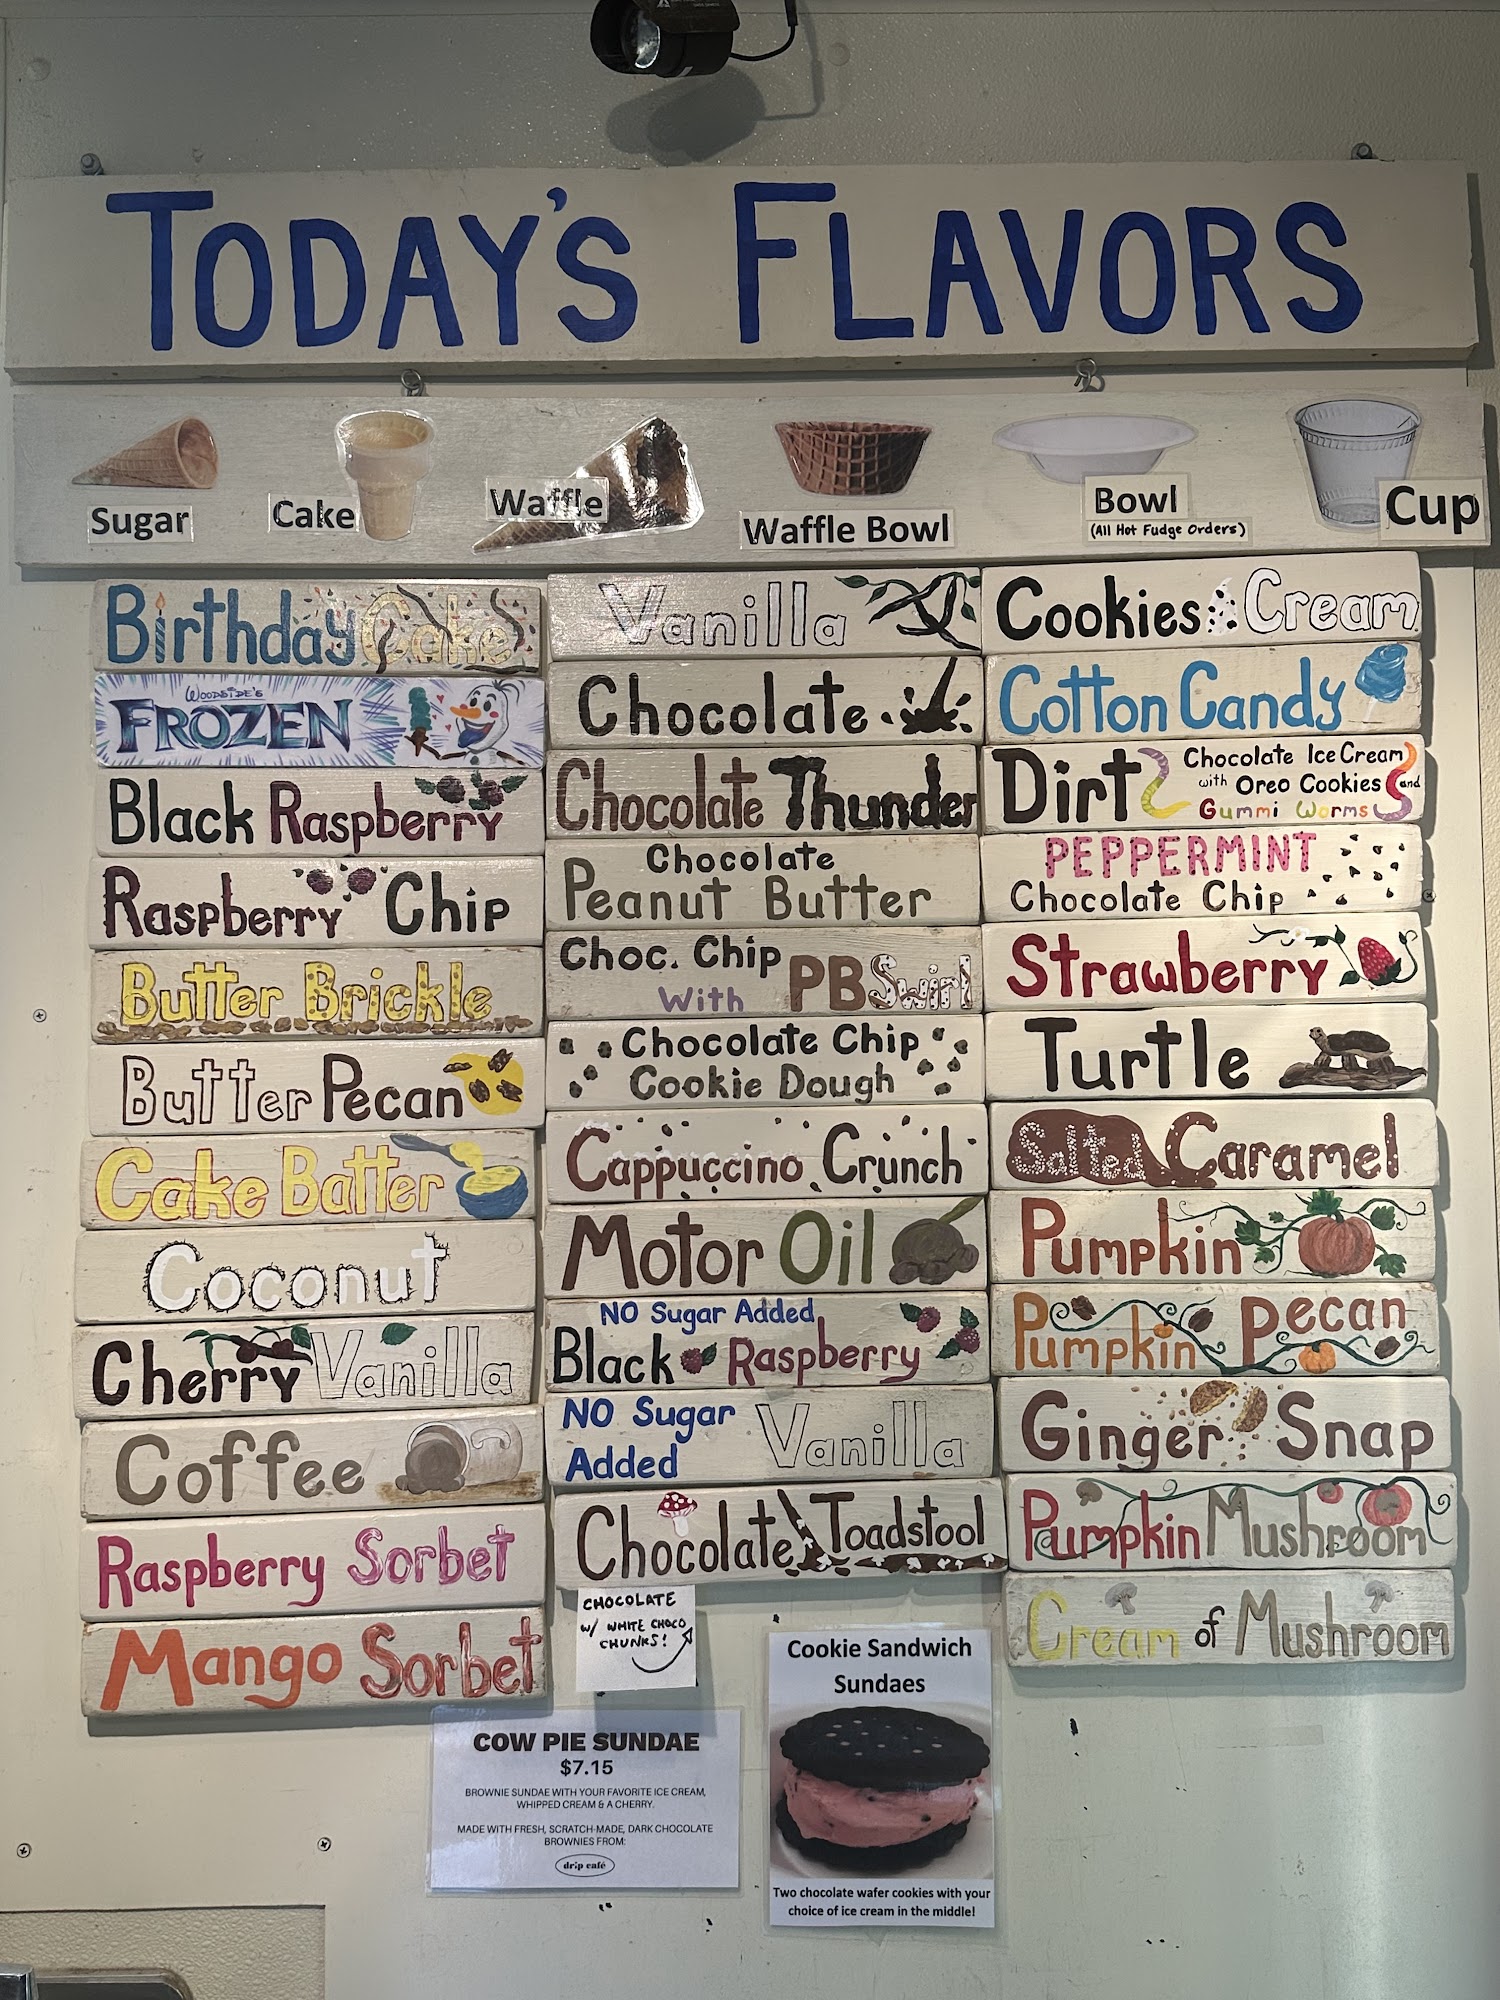 TODAY'S FLAVORS
Sugar
Cake
Waffle
Waffle Bowl
Bowl
(All Hot Fudge Orders)
Cup
Birthday Cake
WOODSIDE'S
FROZEN
Black Raspberry
Raspberry Chip
Butter Brickle
Butter Pecan
Cake Batter
Coconut
Cherry Vanilla
Coffee
Raspberry Sorbet
Mango Sorbet
Vanilla
Chocolate
Chocolate Thunder
Chocolate
Peanut Butter
Choc. Chip
With PB Swirl
Chocolate Chip
Cookie Dough
Cappuccino Crunch
Motor Oil
NO Sugar Added
Black Raspberry
NO Sugar
Added Vanilla
Chocolate Toadstool
CHOCOLATE
W/ WHITE CHOCO
CHUNKS!
Cookies & Cream
Cotton Candy
Dirt
Chocolate Ice Cream
with Oreo Cookies and
Gummi Worms
PEPPERMINT
Chocolate Chip
Strawberry
Turtle
Salted Caramel
Pumpkin
Pumpkin Pecan
Ginger Snap
Pumpkin Mushroom
Cream of Mushroom
COW PIE SUNDAE
$7.15
BROWNIE SUNDAE WITH YOUR FAVORITE ICE CREAM,
WHIPPED CREAM & A CHERRY.
MADE WITH FRESH, SCRATCH-MADE, DARK CHOCOLATE
BROWNIES FROM:
drip café
Cookie Sandwich
Sundaes
Two chocolate wafer cookies with your
choice of ice cream in the middle!